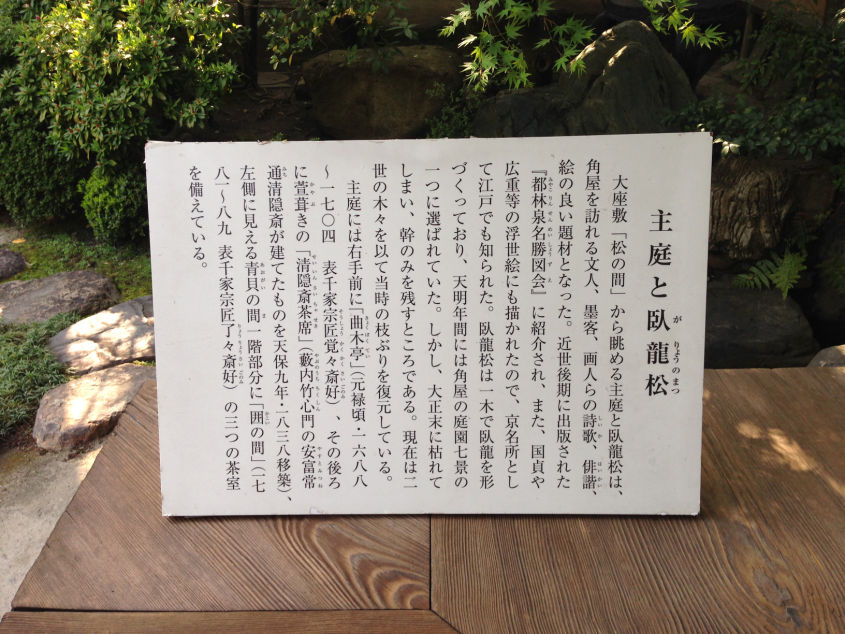 主庭と臥龍松
大座敷「松の間」から眺める主庭と臥龍松は、
角屋を訪れる文人、墨客、画人らの詩歌、俳諧、
絵の良い題材となった。近世後期に出版された
『都林泉名勝図会』に紹介され、また、国貞や
広重等の浮世絵にも描かれたので、京名所とし
て江戸でも知られた。臥龍松は一木で臥龍を形
づくっており、天明年間には角屋の庭園七景の
一つに選ばれていた。しかし、大正末に枯れて
しまい、幹のみを残すところである。現在は二
世の木々を以て当時の枝ぶりを復元している。
主庭には右手前に「曲木亭」(元禄頃・一六八八
～一七〇四 表千家宗匠覚々斎好)、その後ろ
に萱葺きの「清隠斎茶席」(藪内竹心門の安富常
通清隠斎が建てたものを天保九年・一八三八移築)、
左側に見える青貝の間一階部分に「囲の間」(一七
八一～八九 表千家宗匠了々斎好)の三つの茶室
を備えている。